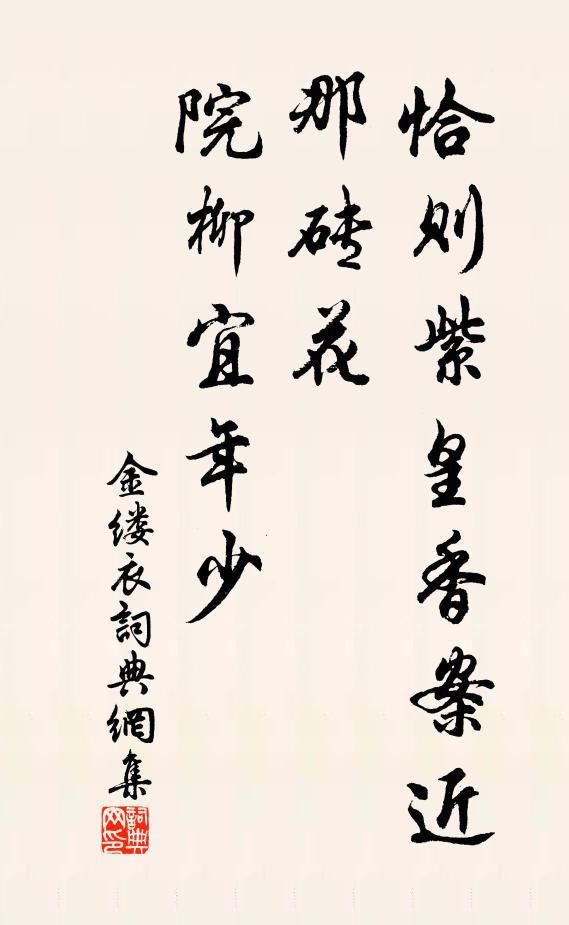 恰则紫皇香案近
那砖花
院柳宜年少
金缕衣詞典網集
詞典
网印